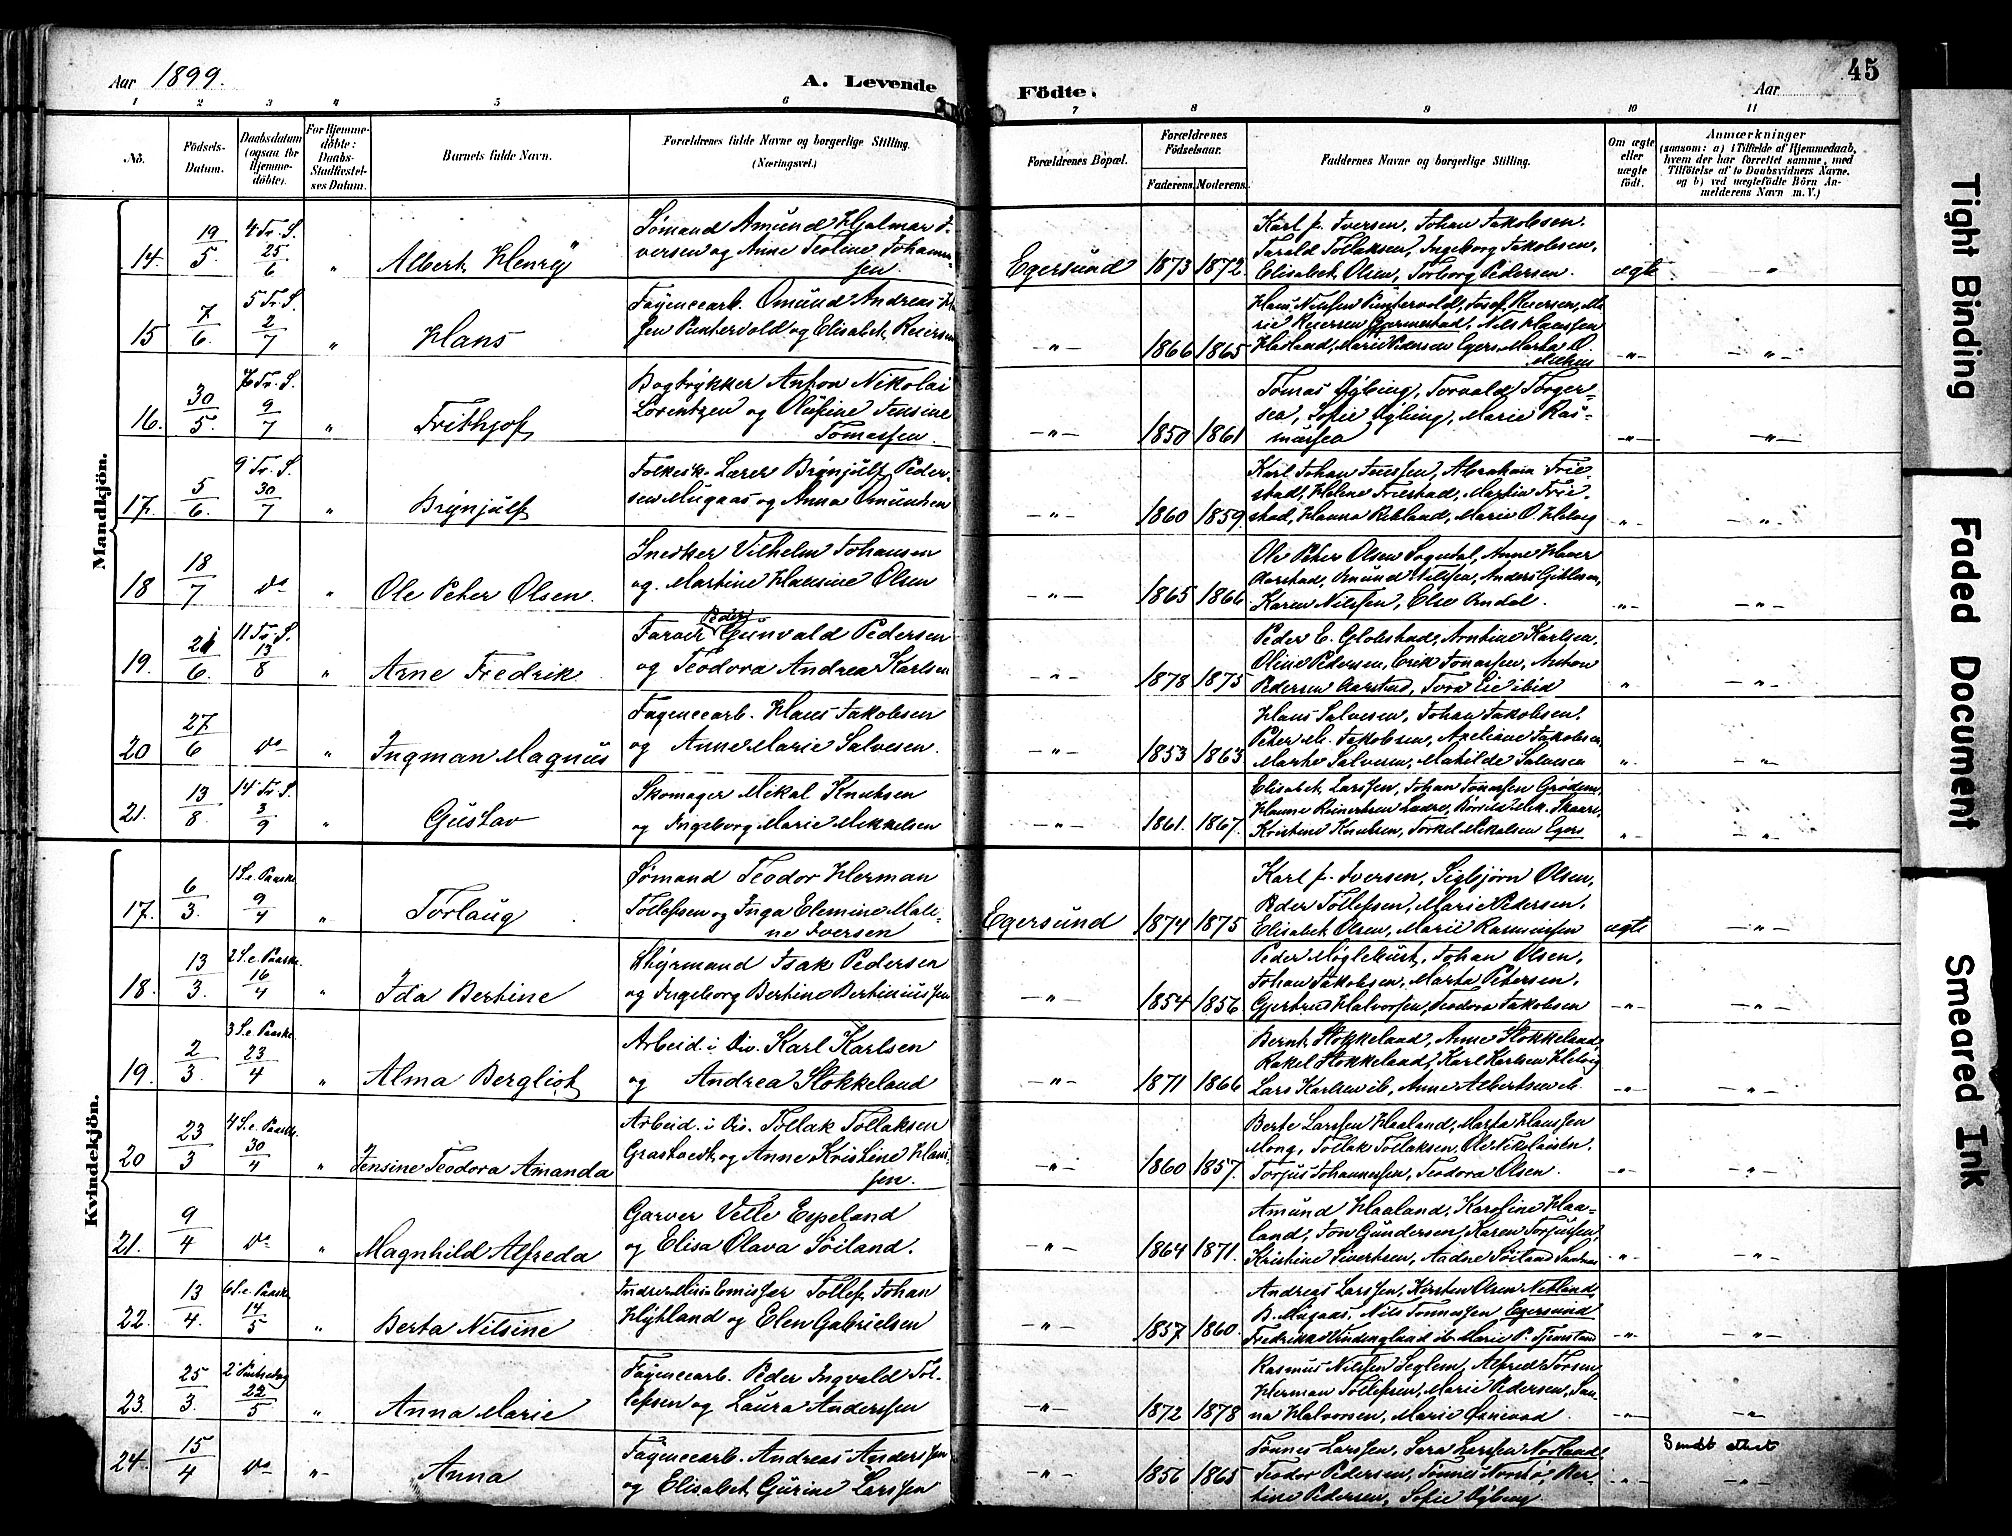 Aar 1899.
A. Levende
Födte.
Aar
45
1 2 3 4 5 6 7 8 9 10 11
No.
Födsels-Datum.
Daabsdatum (ogsaa for Hjemme-döbte).
For Hjemme-döbte: Daabs-Stadfæstel-ses Datum.
Barnets fulde Navn.
Forældrenes fulde Navne og borgerlige Stilling. (Næringsvei.)
Forældrenes Bopæl.
Forældrenes Födselsaar.
Faderens. Moderens.
Faddernes Navne og borgerlige Stilling.
Om ægte eller uægte födt.
Anmærkninger
(saasom: a) i Tilfælde af Hjemmedaab, hvem der har forrettet samme, med Tilföielse af to Daabsvidners Navne, og b) ved uægtefödte Börn An-melderens Navn m. V.)
Mandkjön.
14. 19/5 4 Tr. S. 25/6 " Albert Henry
Sømand Amund Hjalmar I-
versen og Anne Teoline Johanne-
sen.
Egersund 1873 1872
Karl J. Iversen, Johan Jakobsen,
Tarald Tollaksen, Ingeborg Jakobsen,
Elisabet Olsen, Torborg Pedersen.
ægte "
15 7/6. 5 Tr. S. 2/7 " Hans
Fayencearb. Omund Andreas
sen Puntervold og Elisabet Reiersen
-"- 1866 1865
Hans Nilssen Puntervold, Josef Reiersen, Ma-
rie Reiersen Gjermestad, Nils Hanssen
Haaland, Marie Pedersen Egers. Marta O.
-"- -"-
16. 30/5. 6 Tr. S. 9/7 " Frithjof
Bogtrykker Anton Nikolai
Lorentzen og Olufine Jensine
Tomassen.
-"- 1850 1861
Tomas Øgling, Torvald Torger-
sen, Sofie Øgling, Marie Ras-
mussen
-"- -"-
17. 5/6. 9 Tr. S. 30/7 " Brynjulf
Folkesk. Lærer Brynjulf Peder-
sen Mugaas og Anna Omundsen
-"- 1860 1859
Karl Johan Jonssen, Abraham Frie-
stad, Helene Friestad, Martin Frie-
stad, Hanna Rekland, Marie O. Helvig
"- -"-
18 18/7 do " Ole Peter Olsen.
Snedker Vilhelm Johansen
og Martine Hansine Olsen
-"- 1865 1866
Ole Peter Olsen Sogndal, Anne
Aarstad, Omund Nilssen, Anders
Karen Nilssen, Else Aarstad.
"- -"-
19. 21/6. 11 Tr. S. 13/8 " Arne Fredrik
Peder
Farver Gunvald Pedersen
og Teodora Andrea Karlsen
-"- 1878 1875
Peder E. Globstad, Arntine Karlsen,
Oline Pedersen, Erik Jonassen, Anton
Pedersen Aarstad, Tora Eie ibid
" -"-
20 27/6 do " Ingman Magnus
Fayencearb. Hans Jakobsen
og Anne Marie Salvesen.
-"- 1853 1863
Hans Salvesen, Johan Jakobsen,
Peter M. Jakobsen, Axeliane Jakobsen,
Marte Salvesen, Matilde Salvesen
" -"-
21. 13/8 14 Tr. S. 3/9 " Gustav
Skomager Mikal Knutsen
og Ingeborg Marie Mikkelsen
-"- 1861. 1867.
Elisabet Larssen, Johan Jonassen Grødem,
Hanne Reinertsen
Kristine Knutsen, Torkel Mikalsen Egers
"- -"-
Kvindekjön.
17. 6/3. 1 S. e. Paaske 9/4 " Torlaug
Sømand Teodor Herman
Tollefsen og Inga Elemine Mali-
ne Iversen
Egersund 1874 1875
Karl J. Iversen, Sigbjørn Olsen,
Peder Tollefsen, Marie Pedersen,
Elisabet Olsen, Marie Rasmussen
ægte -"-
18. 13/3. 2 S. e. Paaske. 16/4 " Ida Bertine
Styrmand Isak Pedersen
og Ingeborg Bertine Bertiniussen
-"- 1854 1856
Peder Møglebust, Johan Olsen,
Johan Jakobsen, Marta Petersen,
Gjertrud Halvorsen, Teodora Jakobsen
-"- -"-
19. 2/3. 3 S. e. Paaske 23/4 " Alma Bergliot
Arbeid. i Div. Karl Karlsen
og Andrea Stokkeland
-"- 1871 1866
Bernt Stokkeland, Anne Stokkeland,
Rakel Stokkeland, Karl Karlsen Helvig
Lars Karlsen ib, Anne Albertsen ib.
-"- -"-
20 23/3 4 S. e. Paaske. 30/4 " Jensine Teodora Amanda
Arbeid. i Div. Tollak Tollaksen
Grastvedt og Anne Kristine Hans-
sen.
-"- 1860 1857.
Berte Larssen Haaland, Marta Hanssen
Mong, Tollak Tollaksen, Ole Nikolaisen,
Torjus Johannessen, Teodora Olsen.
-"- -"-
21. 9/4 do " Magnhild Alfreda
Garver Velle Espeland
og Elisa Olava Søiland.
-"- 1864 1871.
Amund Haaland, Karoline Haa-
land, Jon Gundersen, Karen Torjussen,
Kristine Sivertsen, Aadne Søiland Sandnes
-"- -"-
22. 13/4. 6 S. e. Paaske 14/5 " Berta Nilsine
Indremissionær Tollef Johan
Hytland og Elen Gabrielsen
-"- 1857 1860.
Andreas Larssen, Kirsten Olsen Netland,
B. Mugaas, Nils Tønnessen Egersund
Fredrikke
-"- -"-
23. 25/3. 2 Pintsedag 22/5 " Anna Marie
Fayencearb. Peder Ingvald Tol-
lefsen og Laura Anderssen
-"- 1872 1878
Rasmus Nilssen Seglem, Alfred Torsen,
Herman Tollefsen, Marie Pedersen, San-
na Halvorsen, Marie Øgrevad.
-"- -"-
24. 15/4 do "- Anna
Fayencearb. Andreas Anderssen
og Elisabet Gurine Larssen
-"- 1856 1865
Tønnes Larssen, Sara Larssen Norland,
Teodor Pedersen, Tønnes Norstø, Ber-
tine Pedersen, Sofie Øgberg.
"- Sendt attest -"-
Tight Binding
Faded Document
Smeared Ink